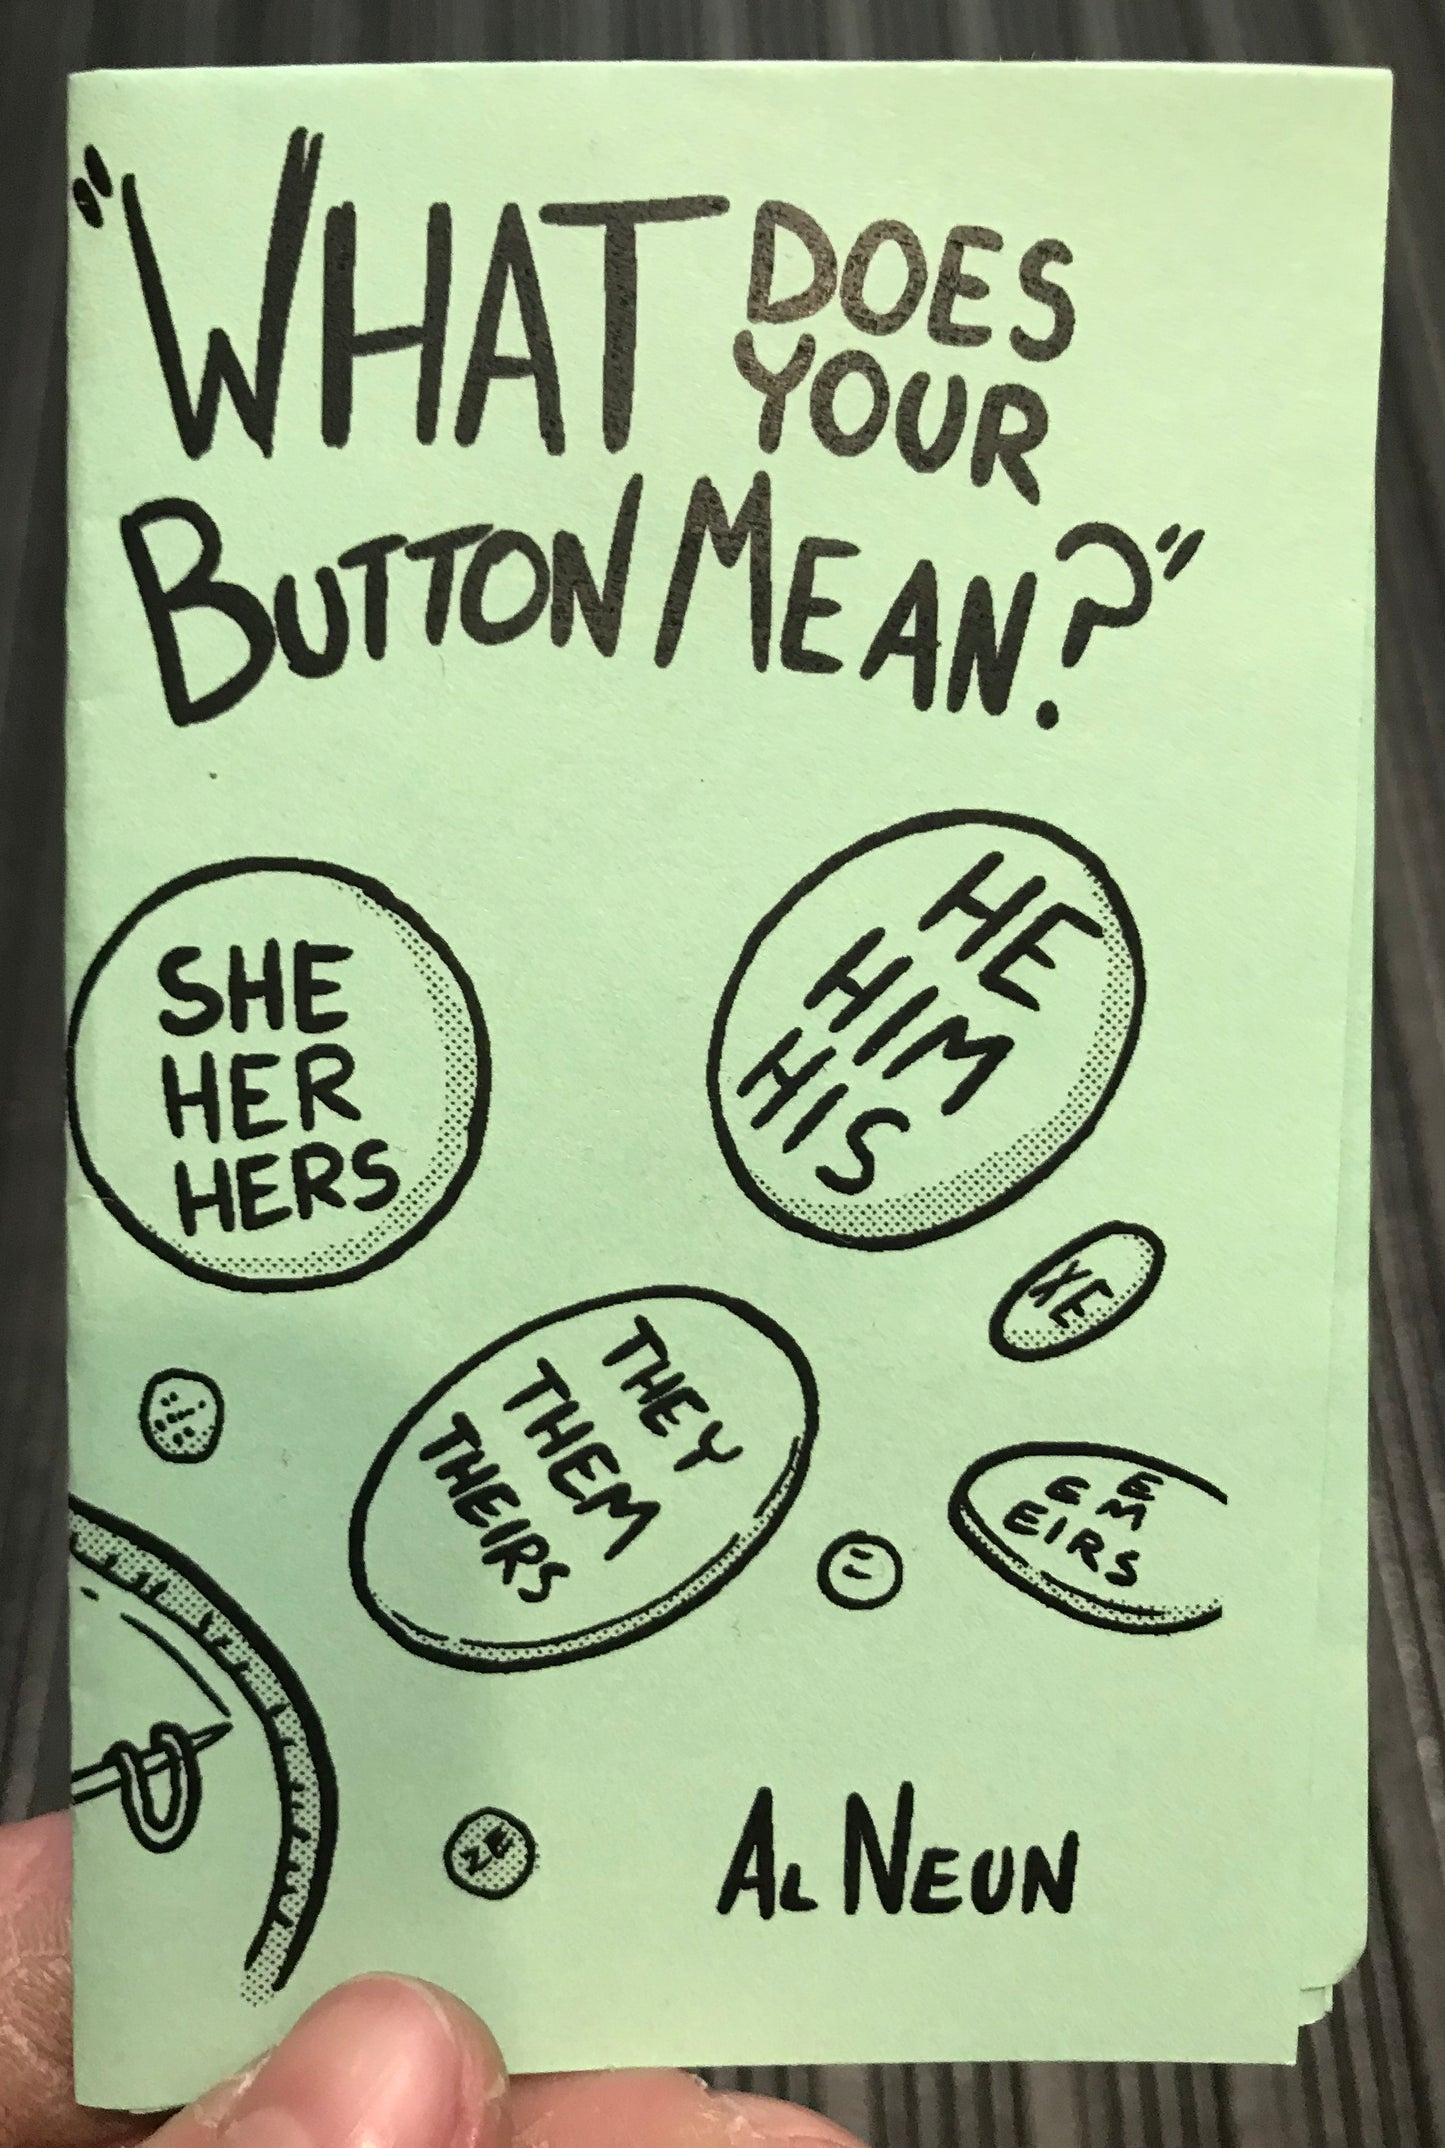 "WHAT DOES
YOUR
BUTTON MEAN?"
SHE
HER
HERS
HE
HIM
HIS
XE
THEY
THEM
THEIRS
E
EM
EIRS
ZE
AL NEUN